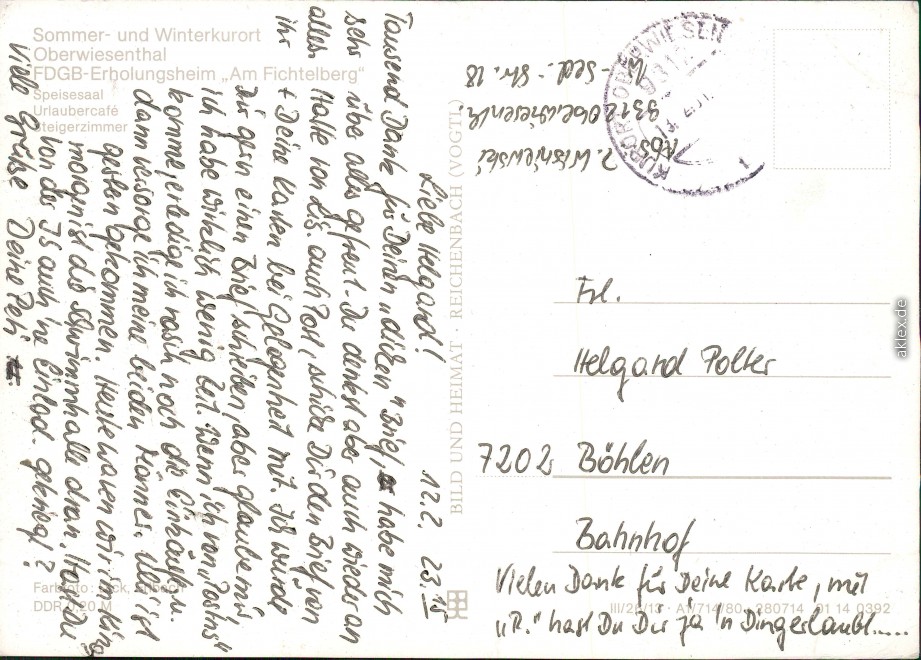 Sommer- und Winterkurort
Oberwiesenthal
FDGB-Erholungsheim „Am Fichtelberg“
Speisesaal
Urlaubercafé
Steigerzimmer
12.2. 23.15
Liebe Helgard!
Tausend Dank für Deinen „dicken“ Brief, habe mich
sehr über alles gefreut. Du denkst aber auch wieder an
alles. Hatte von Lis. auch Post, schicke Dir den Brief von
ihr + Deine Karten bei Gelegenheit mit. Ich würde
Dir gern einen Brief schreiben, aber glaube mir,
ich habe wirklich wenig Zeit. Wenn ich von
komme, erledige ich rasch noch die Einkäufe u.
dann versorge ich meine beiden Männer. Ulli ist
gestern gekommen. Heute waren wir im Kino
morgen ist die Schwimmhalle dran. Hast Du
von der IS auch 'ne Einlad. gekriegt?
Viele Grüße Deine Peti
Farbfoto:
DDR 0,20 M
BILD UND HEIMAT · REICHENBACH (VOGTL)
9312 Oberwiesenth.
KURORT OBERWIESEN
Frl.
Helgard Polter
7202 Böhlen
Bahnhof
Vielen Dank für Deine Karte, mit
„R.“ hast Du Dir ja 'n Ding erlaubt.....
A1/714/80 280714 01 14 0392
aklex.de